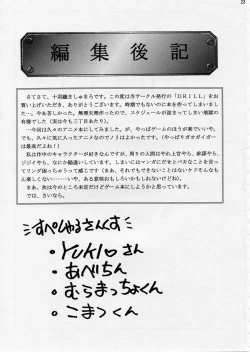 23
編集後記
さてさて、十羽織ましゅまろです。この度は当サークル発行の「DRILL」をお
買い上げいただき、ありがとうございます。時期でもないのに本を作ってしまいまし
た…。やあ苦しかった。無理矢理作ったもので、スケジュールが詰まってしまい地獄の
有様でした（実は今も三丁目あたり）。
…今回は久々のアニメ本にしてみました。が、やっぱゲームのほうが楽でいいや。
でも、久々に気に入ったアニメなのでノリはよかったです。（やっぱりガオガイガー
は最高だよね！）
私は作中のキャラクターが好きなんですが、周りの人間はやれ上官やら、参謀やら、
ジジイやら、なにか偏っていまして。しまいにはマンガにだせとバカなことを言って
まあ、次は今のところ未定だけどゲーム本にしようかと思っています。
では、さいなら。
すぺしゃるさんくす
・YUKI♡さん
・あべりちん
・むらまっちょくん
・こまつくん